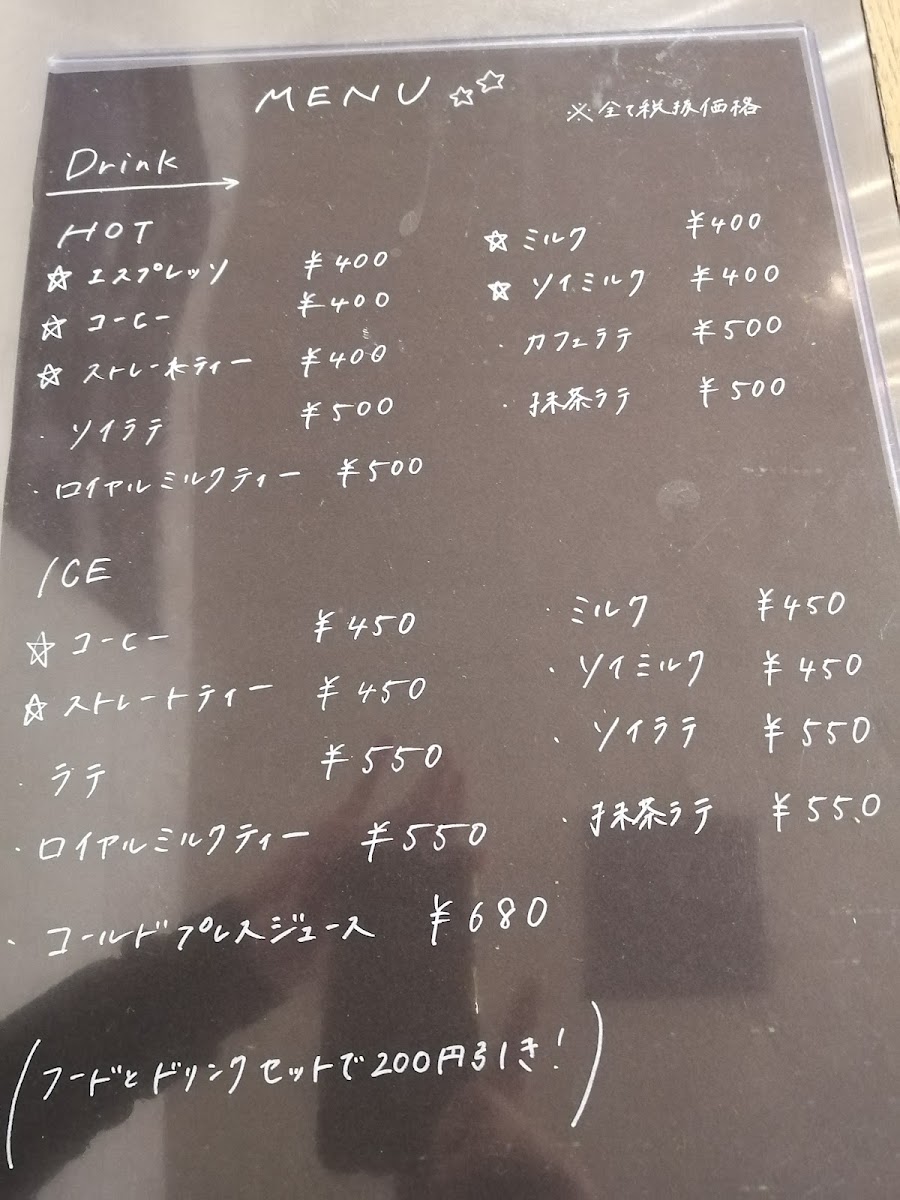 MENU ☆☆
※全て税抜価格
Drink
HOT
☆ エスプレッソ ¥400
☆ コーヒー ¥400
☆ ストレートティー ¥400
・ソイラテ ¥500
・ロイヤルミルクティー ¥500
☆ ミルク ¥400
☆ ソイミルク ¥400
・カフェラテ ¥500
・抹茶ラテ ¥500
ICE
☆ コーヒー ¥450
☆ ストレートティー ¥450
・ラテ ¥550
・ロイヤルミルクティー ¥550
・コールドプレスジュース ¥680
・ミルク ¥450
・ソイミルク ¥450
・ソイラテ ¥550
・抹茶ラテ ¥550
(フードとドリンクセットで200円引き!)